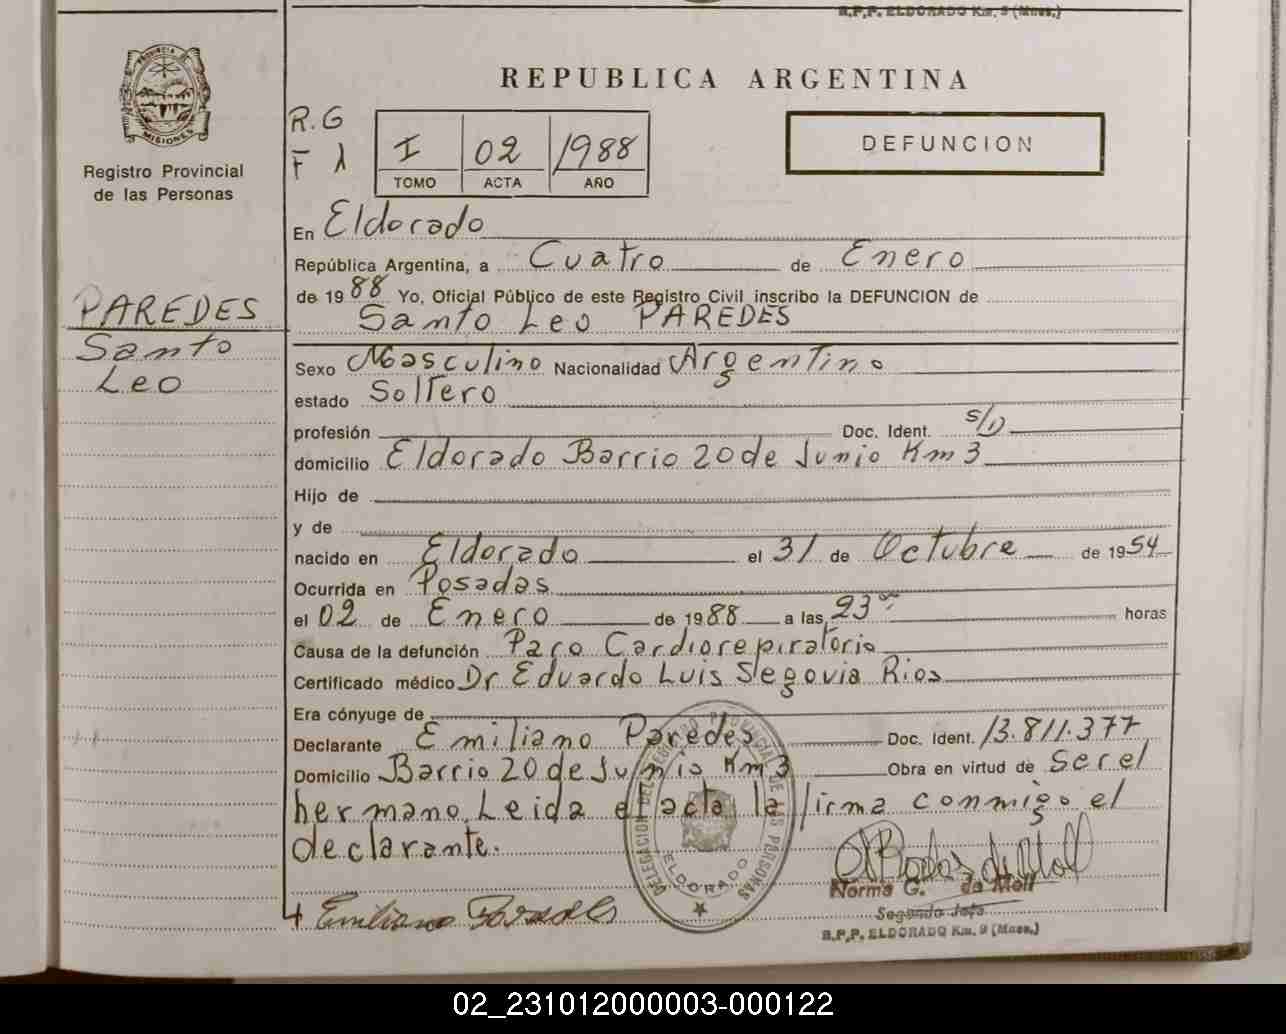 R.P.P. ELDORADO Km. 9 (Mnes.)
PROVINCIA DE
MISIONES
Registro Provincial
de las Personas
REPUBLICA ARGENTINA
R.G
F
I 02 1988
TOMO ACTA AÑO
DEFUNCION
En Eldorado
República Argentina, a Cuatro de Enero
de 1988 Yo, Oficial Público de este Registro Civil inscribo la DEFUNCION de
Santo Leo PAREDES
PAREDES
Santo
Leo
Sexo Masculino Nacionalidad Argentino
estado Soltero
profesión Doc. Ident. S/D
domicilio Eldorado Barrio 20 de Junio Km 3
Hijo de
y de
nacido en Eldorado el 31 de Octubre de 1954
Ocurrida en Posadas
el 02 de Enero de 1988 a las 23 horas
Causa de la defunción Paro Cardiorepiratorio
Certificado médico Dr Eduardo Luis Segovia Rios
Era cónyuge de
Declarante Emiliano Paredes Doc. Ident. 13.811.377
Domicilio Barrio 20 de Junio Km 3 Obra en virtud de Ser el
hermano. Leida el acta la firma conmigo el
declarante.
DELEGACION DEL REGISTRO PROVINCIAL DE LAS PERSONAS
ELDORADO
Emiliano Paredes
Norma G. de Moll
Segundo Jefe
R.P.P. ELDORADO Km. 9 (Mnes.)
02_231012000003-000122